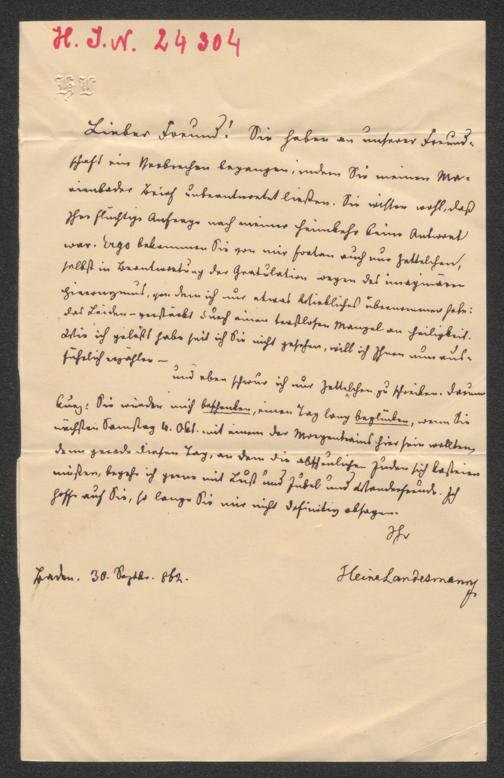 H. I. N. 24304
HL
Lieber Freund! Sie haben an unserer Freund-
schaft ein Verbrechen begangen, indem Sie meinen Ma-
rienbader Brief unbeantwortet ließen. Sie wissten wohl, daß
Ihre flüchtige Anfrage nach meiner Heimkehr keine Antwort
war. Ergo bekommen Sie von mir fortan auch nur Zettelchen,
selbst in Beantwortung der Gratulation wegen des imaginären
Hieronymus, von dem ich nur etwas Wirkliches übernommen habe:
das Leiden – verstärkt durch einen trostlosen Mangel an Heiligkeit.
Wie ich gelebt habe seit ich Sie nicht gesehen, will ich Ihnen nun aus-
führlich erzählen –
und eben schwur ich nur Zettelchen zu schreiben. Darum
kurz: Sie würden mich beschenken, einen Tag lang beglücken, wenn Sie
nächsten Samstag 4. Okt. mit einem der Morgentrains hier sein wollten,
denn gerade diesen Tag, an dem die abscheulichen Juden sich kasteien
müssen, begehe ich gerne mit Lust und Jubel und Wanderfreude. Ich
hoffe auf Sie, so lange Sie mir nicht definitiv absagen.
Ihr
Baden. 30. Septbr. 862.
Heine Landesmann